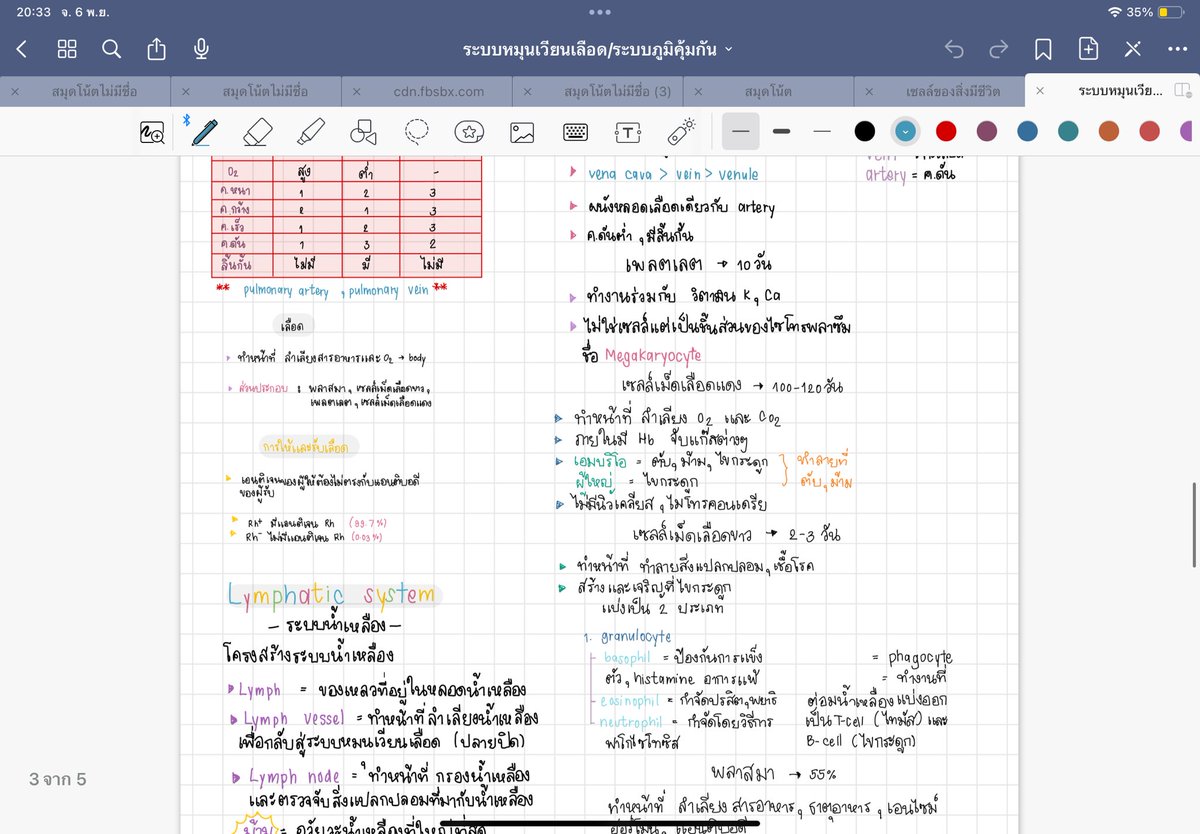 20:33 จ. 6 พ.ย.
35%
ระบบหมุนเวียนเลือด/ระบบภูมิคุ้มกัน
สมุดโน้ตไม่มีชื่อ
สมุดโน้ตไม่มีชื่อ
cdn.fbsbx.com
สมุดโน้ตไม่มีชื่อ (3)
สมุดโน้ต
เซลล์ของสิ่งมีชีวิต
ระบบหมุนเวีย...
O₂ สูง ต่ำ -
ค.หนา 1 2 3
ค.กว้าง 2 1 3
ค.เร็ว 1 2 3
ค.ดัน 1 3 2
ลิ้นกั้น ไม่มี มี ไม่มี
** pulmonary artery , pulmonary vein **
เลือด
ทำหน้าที่ ลำเลียงสารอาหารและ O₂ → body
ส่วนประกอบ : พลาสมา, เซลล์เม็ดเลือดขาว,
เพลตเลต, เซลล์เม็ดเลือดแดง
การให้และรับเลือด
แอนติเจนของผู้ให้ต้องไม่ตรงกับแอนติบอดี
ของผู้รับ
Rh⁺ มีแอนติเจน Rh (99.7%)
Rh⁻ ไม่มีแอนติเจน Rh (0.03%)
Lymphatic system
- ระบบน้ำเหลือง -
โครงสร้างระบบน้ำเหลือง
Lymph = ของเหลวที่อยู่ในหลอดน้ำเหลือง
Lymph vessel = ทำหน้าที่ลำเลียงน้ำเหลือง
เพื่อกลับสู่ระบบหมนเวียนเลือด (ปลายปิด)
Lymph node = ทำหน้าที่ กรองน้ำเหลือง
และตรวจจับสิ่งแปลกปลอมที่มากับน้ำเหลือง
ม้าม = อวัยวะน้ำเหลืองที่ใหญ่ที่สุด
vena cava > vein > venule
ผนังหลอดเลือดเดียวกับ artery
ค.ดันต่ำ, มีลิ้นกั้น
เพลตเลต → 10 วัน
ทำงานร่วมกับ วิตามิน K, Ca
ไม่ใช่เซลล์แต่เป็นชิ้นส่วนของไซโทรพลาซึม
ชื่อ Megakaryocyte
เซลล์เม็ดเลือดแดง → 100-120 วัน
ทำหน้าที่ ลำเลียง O₂ และ CO₂
ภายในมี Hb จับแก๊สต่างๆ
เอมบริโอ = ตับ, ม้าม, ไขกระดูก
ผู้ใหญ่ = ไขกระดูก
ทำลายที่
ตับ, ม้าม
ไม่มีนิวเคลียส, ไมโทรคอนเดรีย
เซลล์เม็ดเลือดขาว → 2-3 วัน
ทำหน้าที่ ทำลายสิ่งแปลกปลอม, เชื้อโรค
สร้างและเจริญที่ไขกระดูก
แบ่งเป็น 2 ประเภท
1. granulocyte
basophil = ป้องกันการแข็ง
ตัว, histamine อาการแพ้
eosinophil = กำจัดปรสิต, พยาธิ
neutrophil = กำจัดโดยวิธีการ
ฟาโกไซโทซิส
= phagocyte
= ทำงานที่
ต่อมน้ำเหลือง แบ่งออก
เป็น T-cell (ไทมัส) และ
B-cell (ไขกระดูก)
พลาสมา → 55%
ทำหน้าที่ ลำเลียง สารอาหาร, ธาตุอาหาร, เอนไซม์
ฮอร์โมน, แอนติบอดี
artery = ค.ดัน
3 จาก 5